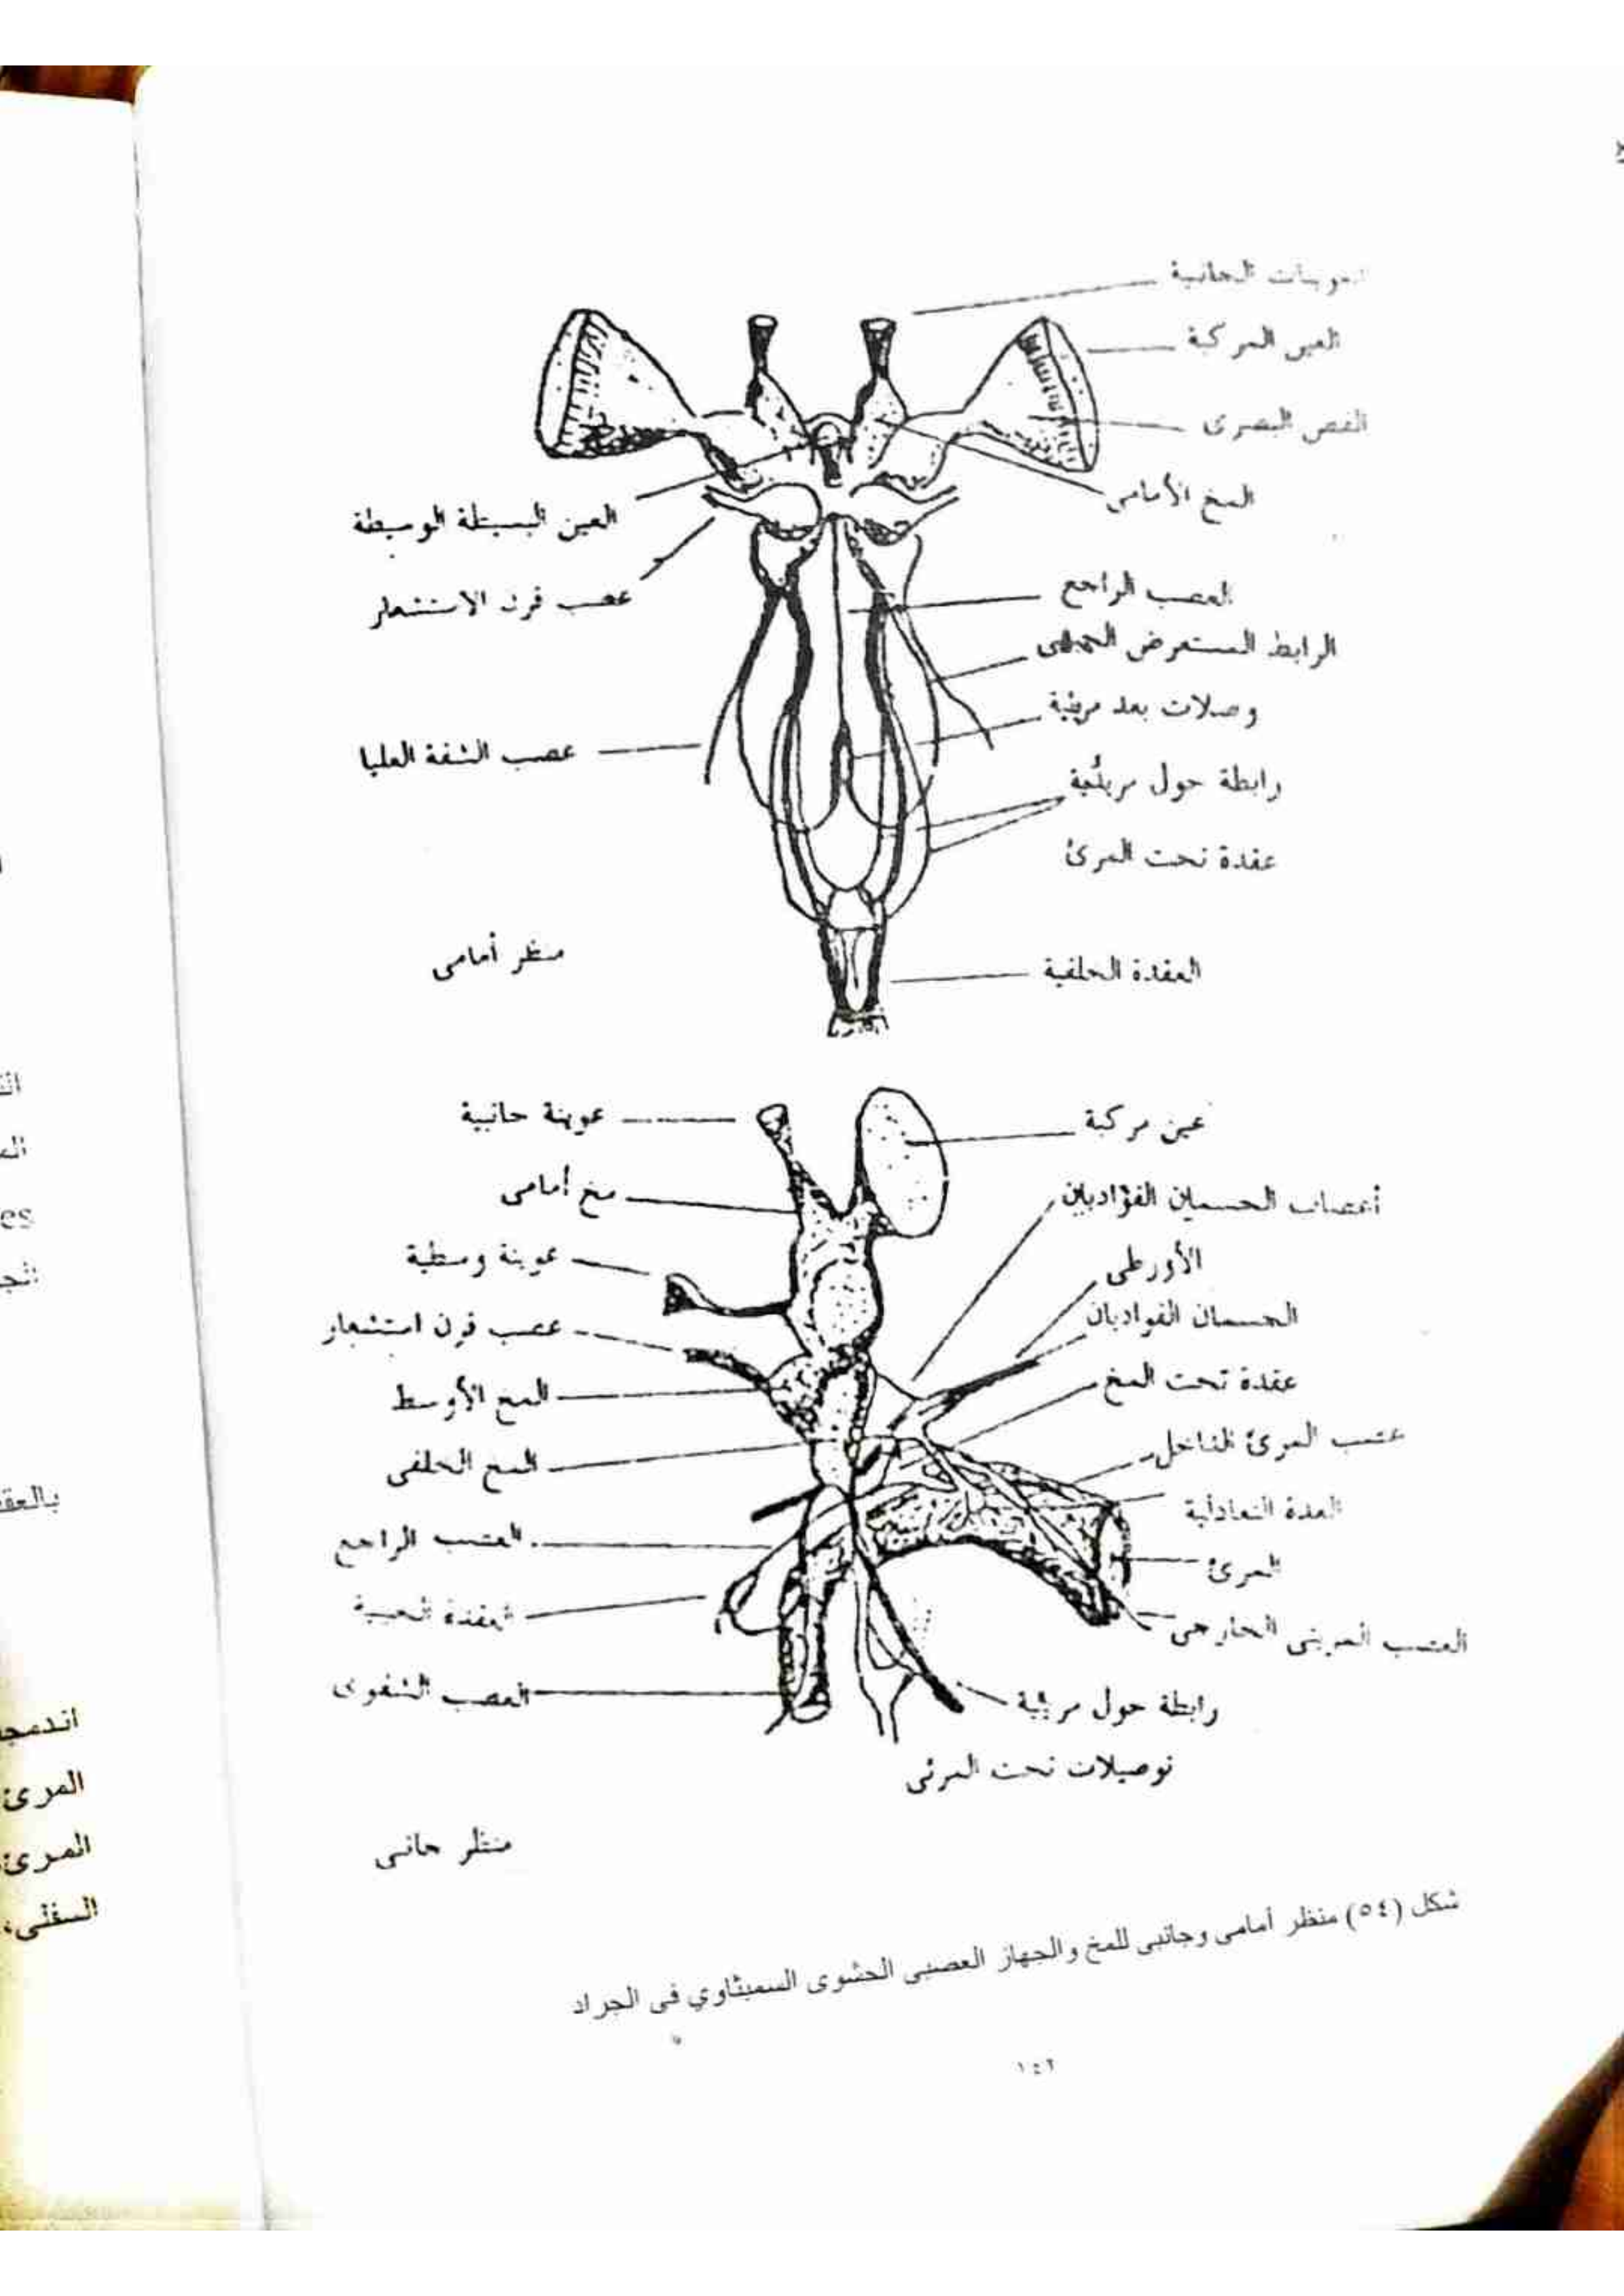 العوينات الجانبية
العين المركبة
الفص البصرى
المخ الأمامى
العين البسيطة الوسيطة
عصب قرن الاستشعار
العصب الراجع
الرابط المستعرض
وصلات بعد مريئية
عصب الشفة العليا
رابطة حول مريئية
عقدة تحت المرئ
منظر أمامى
العقدة الخلفية
عوينة جانبية
عين مركبة
مخ أمامى
أعصاب الجسمين الفؤاديين
عوينة وسطية
الأورطى
عصب قرن استشعار
الجسمان الفواديان
المخ الأوسط
عقدة تحت المخ
المخ الخلفى
عصب المرئ الداخل
العصب الراجع
المرئ
العقدة الجبهية
العصب المريئى الخارجى
العصب الشفوى
رابطة حول مريئية
توصيلات تحت المرئى
منظر جانبى
شكل (٥٤) منظر أمامى وجانبى للمخ والجهاز العصبى الحشوى السمبثاوي فى الجراد
١٤٢
اندمج
المرئ
المرئ
السفلى،